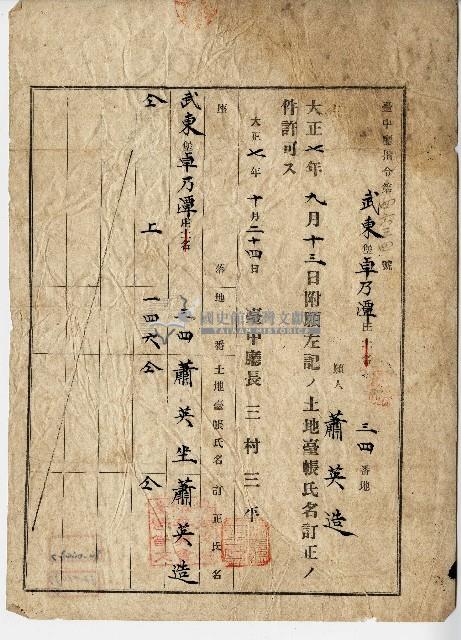 臺中廳指令第四五三四號
武東堡卓乃潭庄
三四番地
願人 蕭英造
大正七年九月十三日附願左記ノ土地臺帳氏名訂正ノ
件許可ス
大正七年十月二十四日
臺中廳長三村三平
座落地番土地臺帳氏名訂正氏名
武東堡卓乃潭庄
三四 蕭英坐 蕭英造
仝上 一四六 仝 仝
國史館臺灣文獻館
TAIWAN HISTORICA